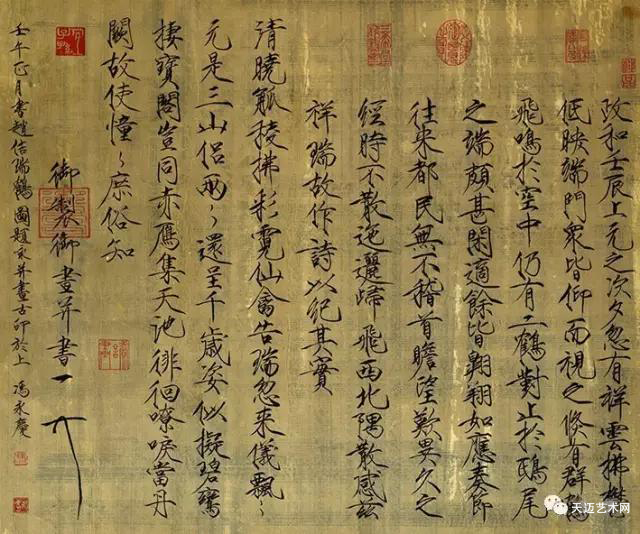 政和壬辰上元之次夕忽有祥雲拂鬱
低映端門眾皆仰而視之倏有群鶴
飛鳴於空中仍有二鶴對止於鴟尾
之端頗甚閑適餘皆翱翔如應奏節
往來都民無不稽首瞻望歎異久之
經時不散迤邐歸飛西北隅散感茲
祥瑞故作詩以紀其實
清曉觚稜拂彩霓仙禽告瑞忽來儀飄〻
元是三山侶兩〻還呈千歲姿似擬碧鸞
棲寶閣豈同赤鴈集天池徘徊嘹唳當丹
闕故使憧〻庶俗知
御製御畫并書
壬午正月書趙佶瑞鶴圖題並畫古印於上 馮永慶
天迈艺术网